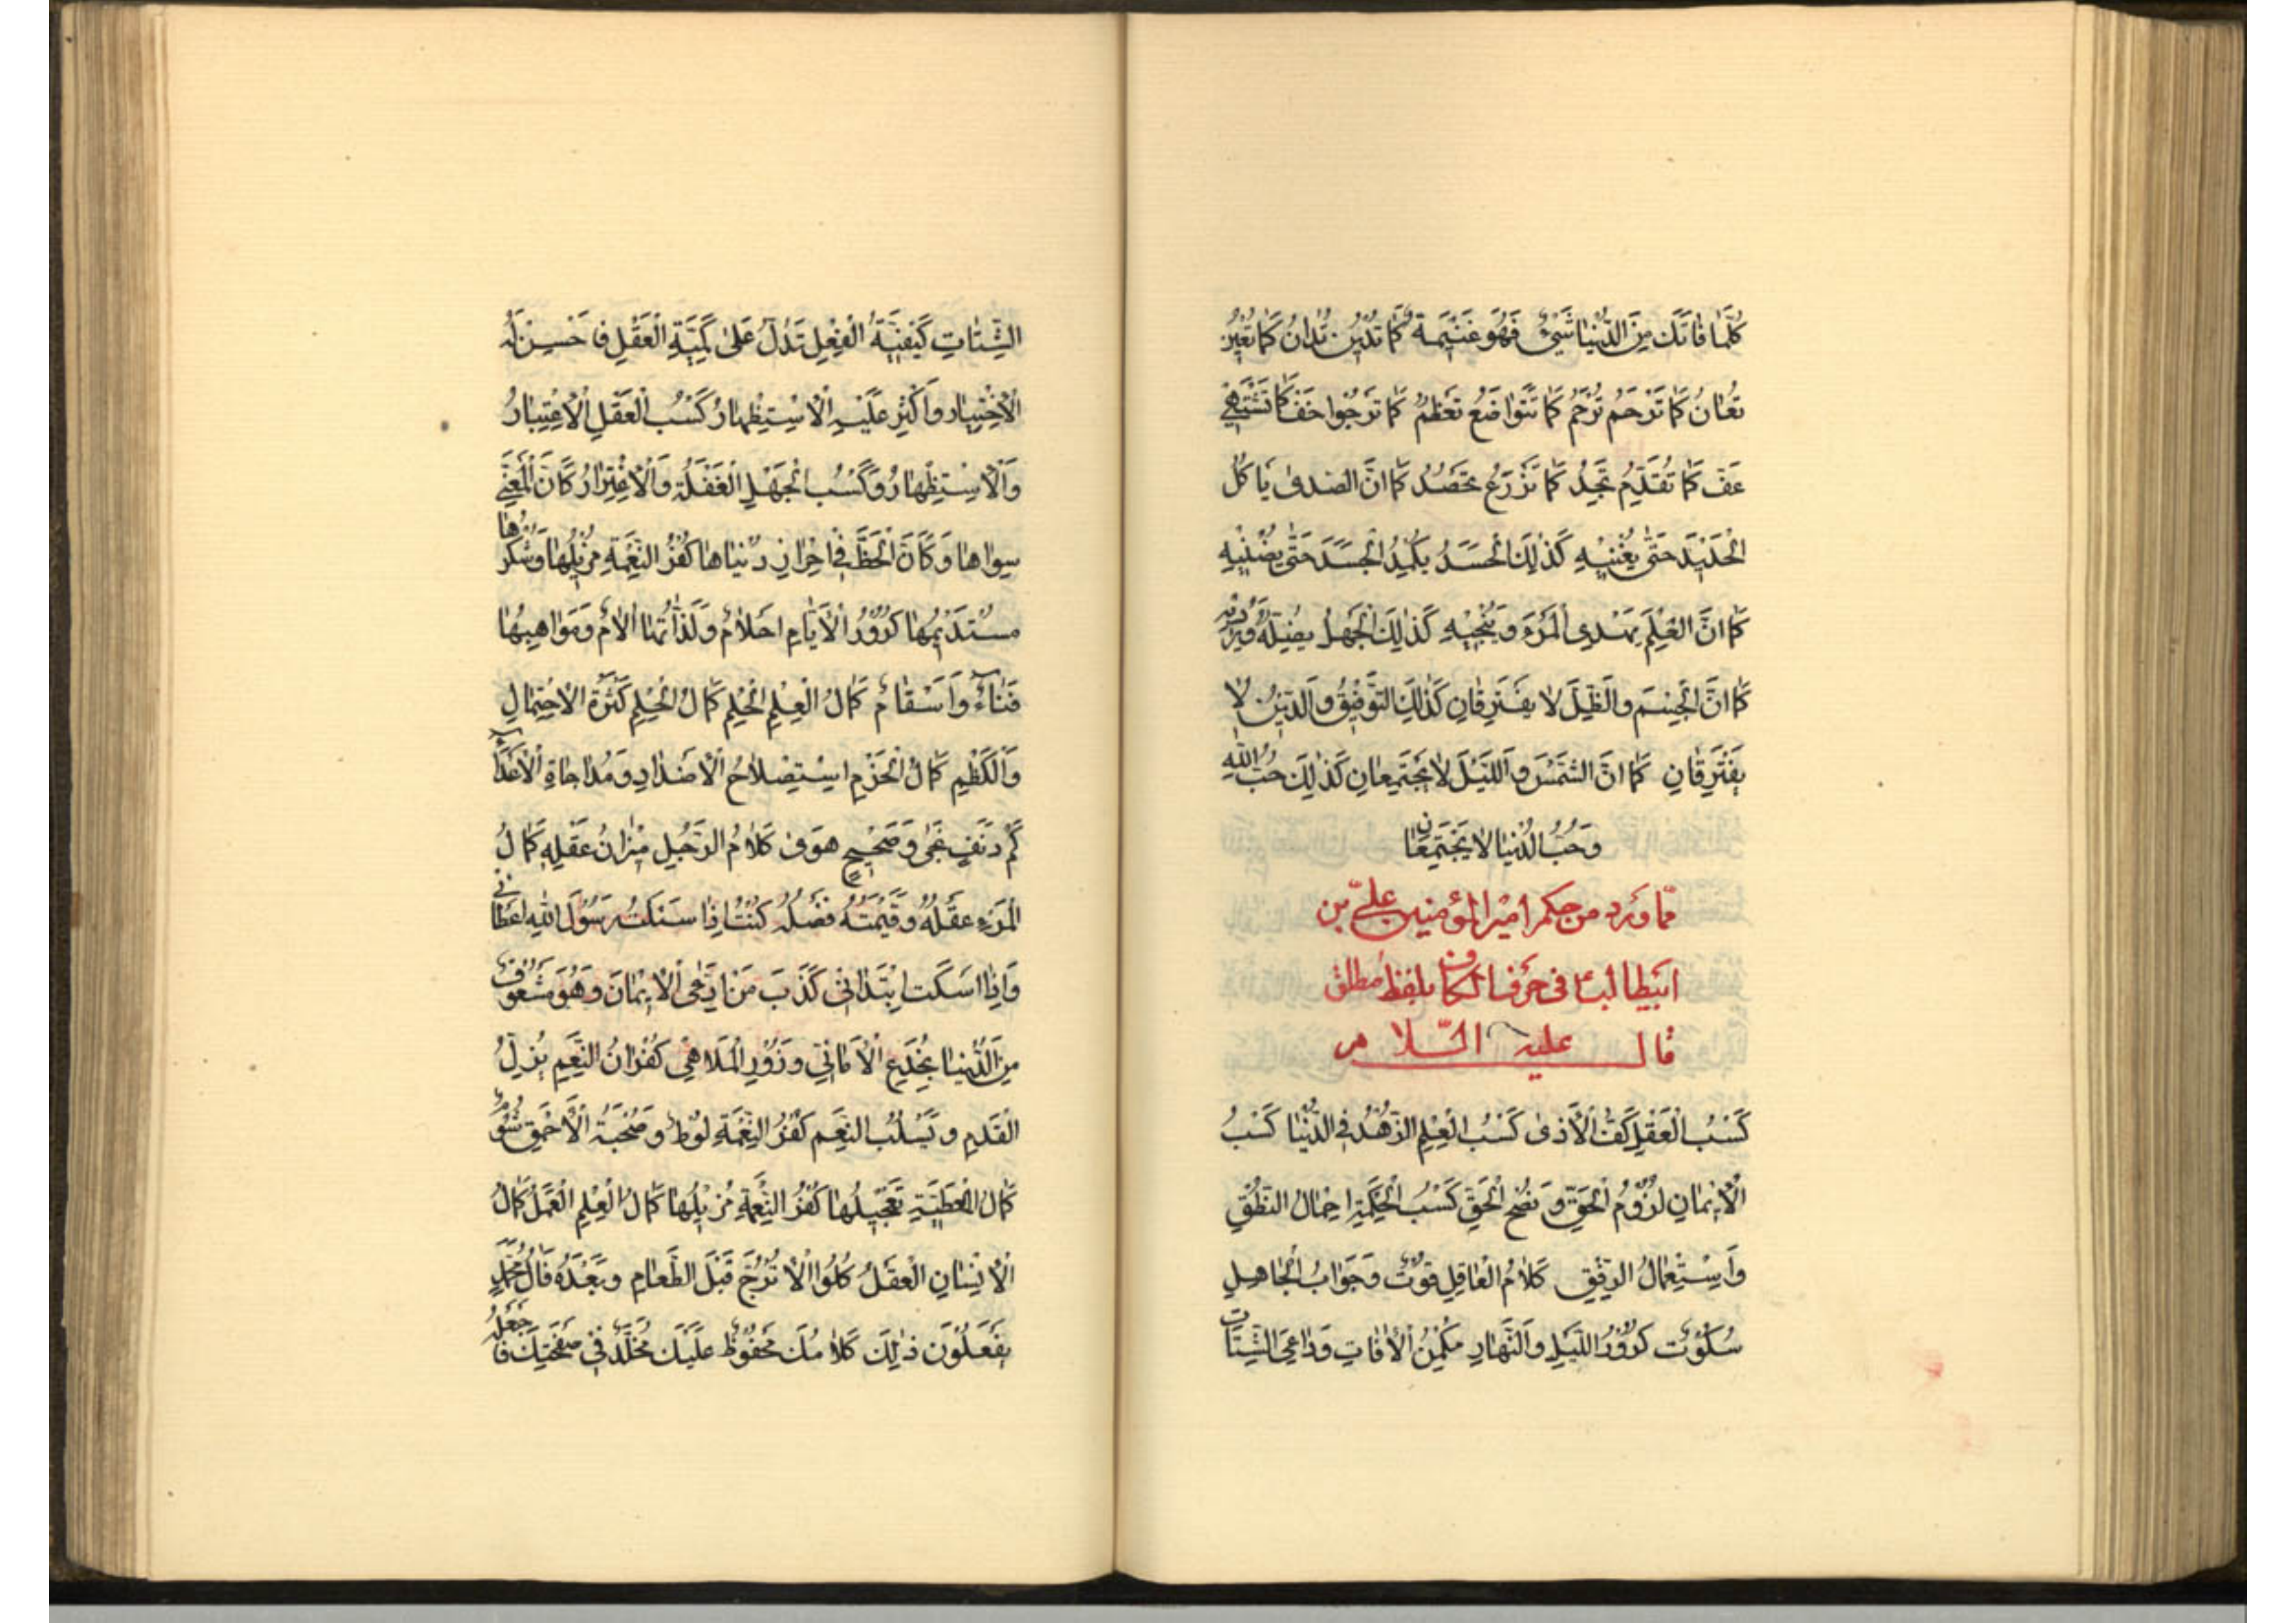 كُلَّمَا فَاتَكَ مِنَ الدُّنْيَا شَيْءٌ فَهُوَ غَنِيمَةٌ كَمَا تَدِينُ تُدَانُ كَمَا تُعِينُ
تُعَانُ كَمَا تَرْحَمُ تُرْحَمُ كَمَا تَتَوَاضَعُ تَعْظُمُ كَمَا تَرْجُوا خَفْ كَمَا تَشْتَهِي
عَفِّ كَمَا تُقَدِّمُ تَجِدُ كَمَا تَزْرَعُ تَحْصُدُ كَمَا انَّ الصَدى يَاكُلُ
الْحَدِيدَ حَتّى يُفْنِيْهِ كَذٰلِكَ الْحَسَدُ يَكْمِدُ الْجَسَدَ حَتّٰى يُضْنِيْهِ
كَمَا انَّ الْعِلْمَ يَهْدِي الْمَرْءَ وَيُنْجِيْهِ كَذٰلِكَ الْجَهْلُ يُضِلُّهُ وَيُرْدِيْهِ
كَمَا انَّ الْجِسْمَ وَالظِّلَّ لَا يَفْتَرِقَانِ كَذٰلِكَ التَّوْفِيْقُ وَالدِّيْنُ لَا
يَفْتَرِقَانِ كَمَا انَّ الشَّمْسَ وَاللَّيْلَ لَا يَجْتَمِعَانِ كَذٰلِكَ حُبُّ اللهِ
وَحُبُّ الدُّنْيَا لَا يَجْتَمِعَانِ
مّما وَرد من حكم امير المؤمنين عليّ بن
ابيطالبؑ في حرف الكاف بلفظ مطلق
قال عليه السّلام
كَسْبُ الْعَقْلِ كَفُّ الْأَذى كَسْبُ الْعِلْمِ الزُّهْدُ فِي الدُّنْيَا كَسْبُ
الْاِيْمَانِ لُزُوْمُ الْحَقِّ وَنُصْحُ الْخَلْقِ كَسْبُ الْحِكْمَةِ اِجْمَالُ النُّطْقِ
وَاسْتِعْمَالُ الرِّفْقِ كَلَامُ الْعَاقِلِ قُوْتٌ وَجَوَابُ الْجَاهِلِ
سُكُوْتٌ كُرُوْرُ اللَّيْلِ وَالنَّهَارِ مَكْمَنُ الْاٰفَاتِ وَدَاعِيَ الشَّتَاتِ
الشَّتَاتِ كَيْفِيَّةُ الْفِعْلِ تَدُلُّ عَلٰى كَمِّيَّةِ الْعَقْلِ فَاَحْسِنْ لَهُ
الْاِخْتِيَارَ وَاَكْثِرْ عَلَيْهِ الْاِسْتِظْهَارَ كَسْبُ الْعَقْلِ الْاِعْتِبَارُ
وَالْاِسْتِظْهَارُ وَكَسْبُ الْجَهْلِ الْغَفْلَةُ وَالْاِغْتِرَارُ كَانَّ الْمَعْنِيَّ
سِوَاهَا وَكَانَّ الْحَظَّ فِي اِحْرَازِ دُنْيَاهَا كُفْرُ النِّعْمَةِ مُزِيْلُهَا وَشُكْرُهَا
مُسْتَدِيْمُهَا كُرُوْرُ الْاَيَّامِ اَحْلَامٌ وَلَذَّاتُهَا اٰلَامٌ وَمَوَاهِبُهَا
فَنَاءٌ وَاَسْقَامٌ كَمَالُ الْعِلْمِ الْحِلْمُ كَمَالُ الْحِلْمِ كَثْرَةُ الْاِحْتِمَالِ
وَالْكَظْمِ كَمَالُ الْحَزْمِ اِسْتِصْلَاحُ الْاَضْدَادِ وَمُدَاجَاةُ الْاَعْدَاءِ
كَمْ دَنِفٍ نَجٰى وَصَحِيْحٍ هَوٰى كَلَامُ الرَّجُلِ مِيْزَانُ عَقْلِهِ كَمَالُ
الْمَرْءِ عَقْلُهُ وَقِيْمَتُهُ فَضْلُهُ كُنْتُ اِذَا سَئَلْتُ رَسُوْلَ اللهِ اَعْطَانِيْ
وَاِذَا اَسْكَتُّ اِبْتَدَانِيْ كَذَبَ مَنِ ادَّعَى الْاِيْمَانَ وَهُوَ مَشْعُوْفٌ
مِنَ الدُّنْيَا بِخُدَعِ الْاَمَانِيّ وَزُوْرِ الْمَلَاهِيْ كُفْرَانُ النِّعَمِ يُزِلُّ
الْقَدَمَ وَيَسْلُبُ النِّعَمَ كُفْرُ النِّعْمَةِ لُؤْمٌ وَصُحْبَةُ الْاَحْمَقِ شُؤْمٌ
كَمَالُ الْعَطِيَّةِ تَعْجِيْلُهَا كُفْرُ النِّعْمَةِ مُزِيْلُهَا كَمَالُ الْعِلْمِ الْعَمَلُ كَمَالُ
الْاِنْسَانِ الْعَقْلُ كُلُوا الْاُتْرُجَّ قَبْلَ الطَّعَامِ وَبَعْدَهُ فَاٰلُ مُحَمَّدٍ
يَفْعَلُوْنَ ذٰلِكَ كَلَامُكَ مَحْفُوْظٌ عَلَيْكَ مُخَلَّدٌ فِيْ صَحِيْفَتِكَ فَاجْعَلْهُ